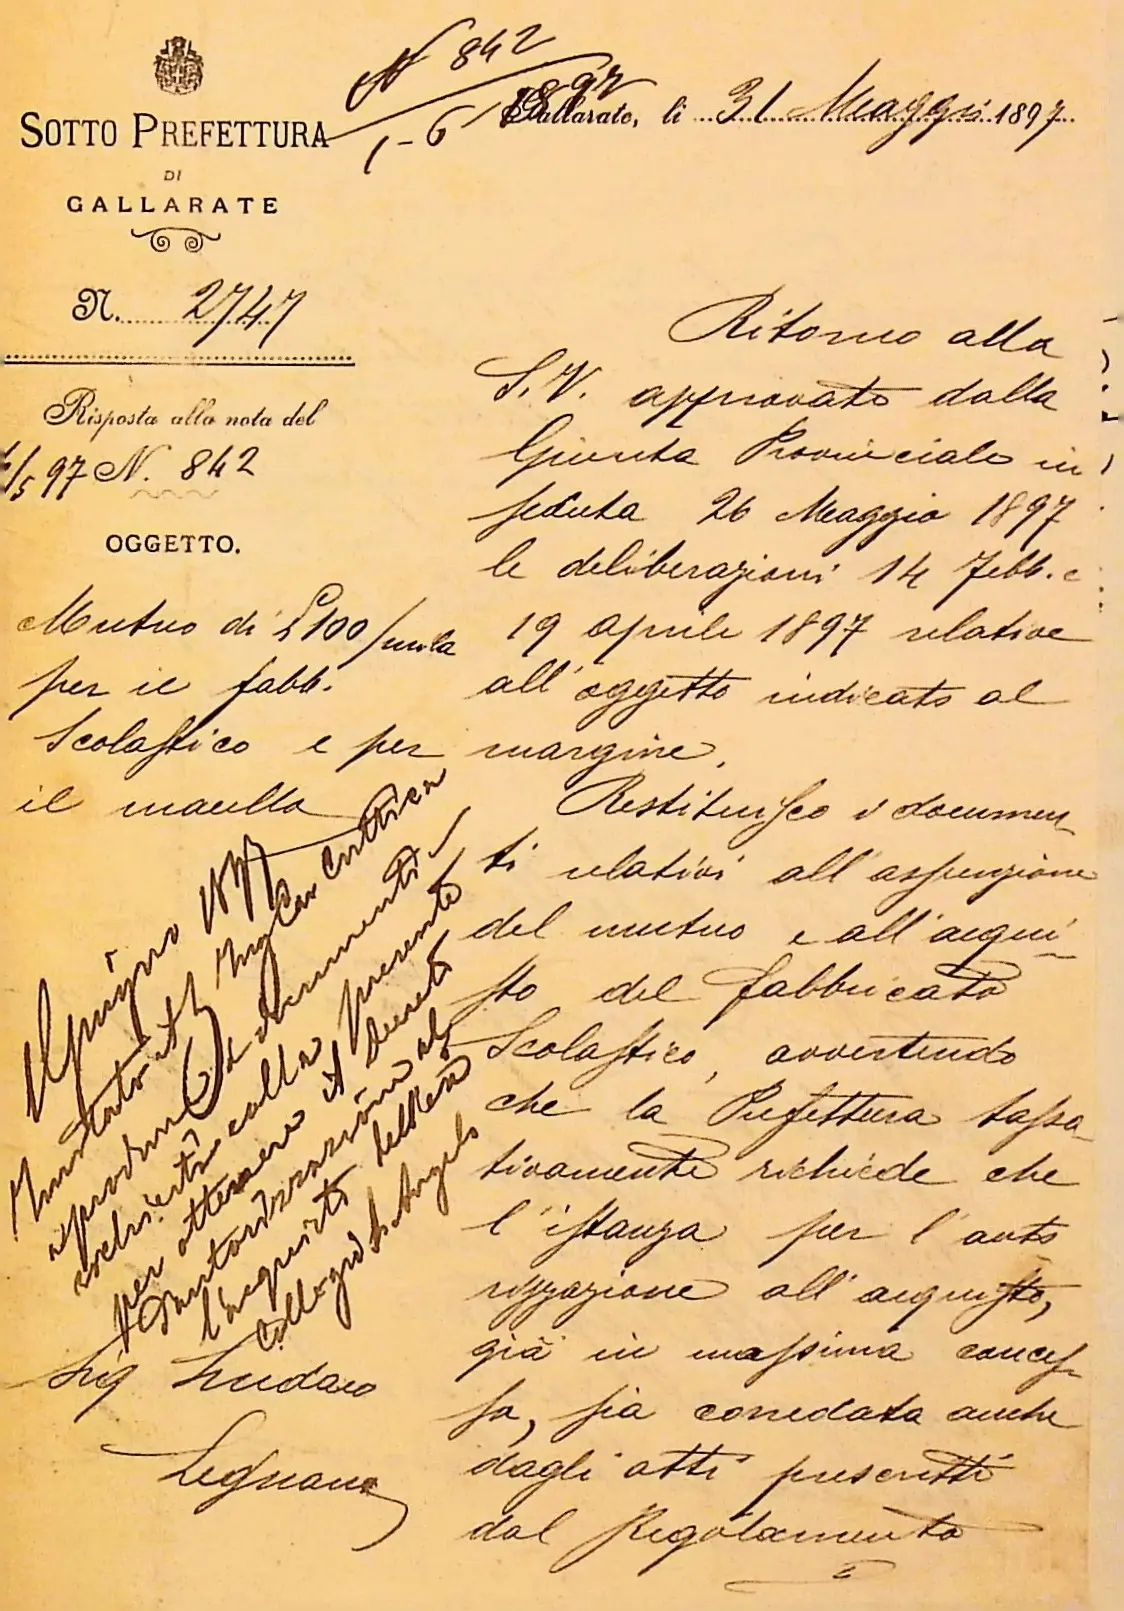 N 842
1-6 1897
SOTTO PREFETTURA
DI
GALLARATE
Gallarate, li 31 Maggio 1897
N. 2747
Risposta alla nota del
/5 97 N. 842
OGGETTO.
Mutuo di £ 100/mila
per il fabb.
Scolastico e per
il macello
Ritorno alla
S.V. approvato dalla
Giunta Provinciale in
seduta 26 Maggio 1897
le deliberazioni 14 Febb. e
19 aprile 1897 relative
all'oggetto indicato al
margine.
Restituisco i documen-
ti relativi all'assunzione
del mutuo e all'acqui-
sto del fabbricato
Scolastico, avvertendo
che la Prefettura tassa-
tivamente richiede che
l'istanza per l'auto
rizzazione all'acquisto,
già in massima conces-
sa, sia corredata anche
dagli atti prescritti
dal Regolamento
giugno 1897
documenti
richiesti colla presente
per ottenere il Decreto
d'autorizzazione al
l'acquisto dell'ex
Collegio S. Angelo
Sig Sindaco
Legnano